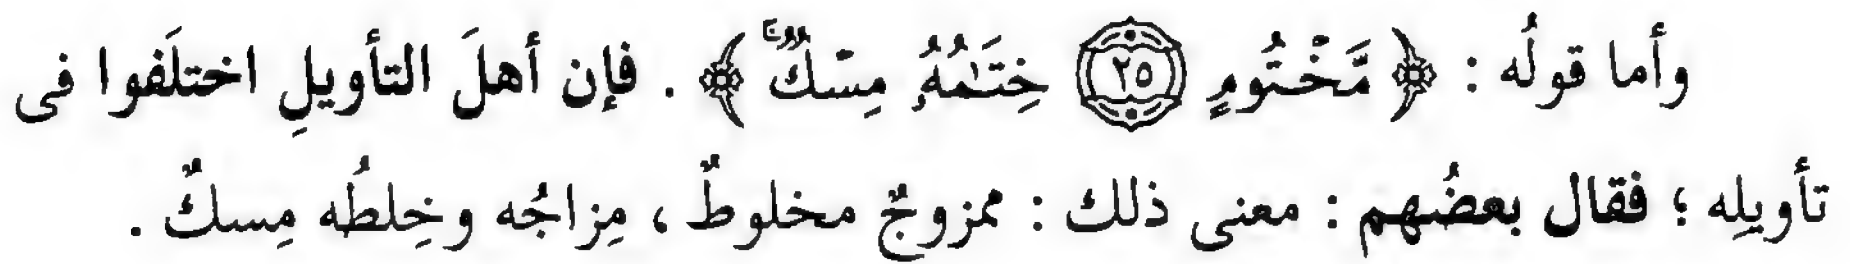 وأما قولُه : ﴿ مَّخْتُومٍ ۝٢٥ خِتَٰمُهُۥ مِسْكٌۚ ﴾ . فإن أهلَ التأويلِ اختلَفوا فى
تأويلِه ؛ فقال بعضُهم : معنى ذلك : ممزوجٌ مخلوطٌ ، مِزاجُه وخِلطُه مِسكٌ .